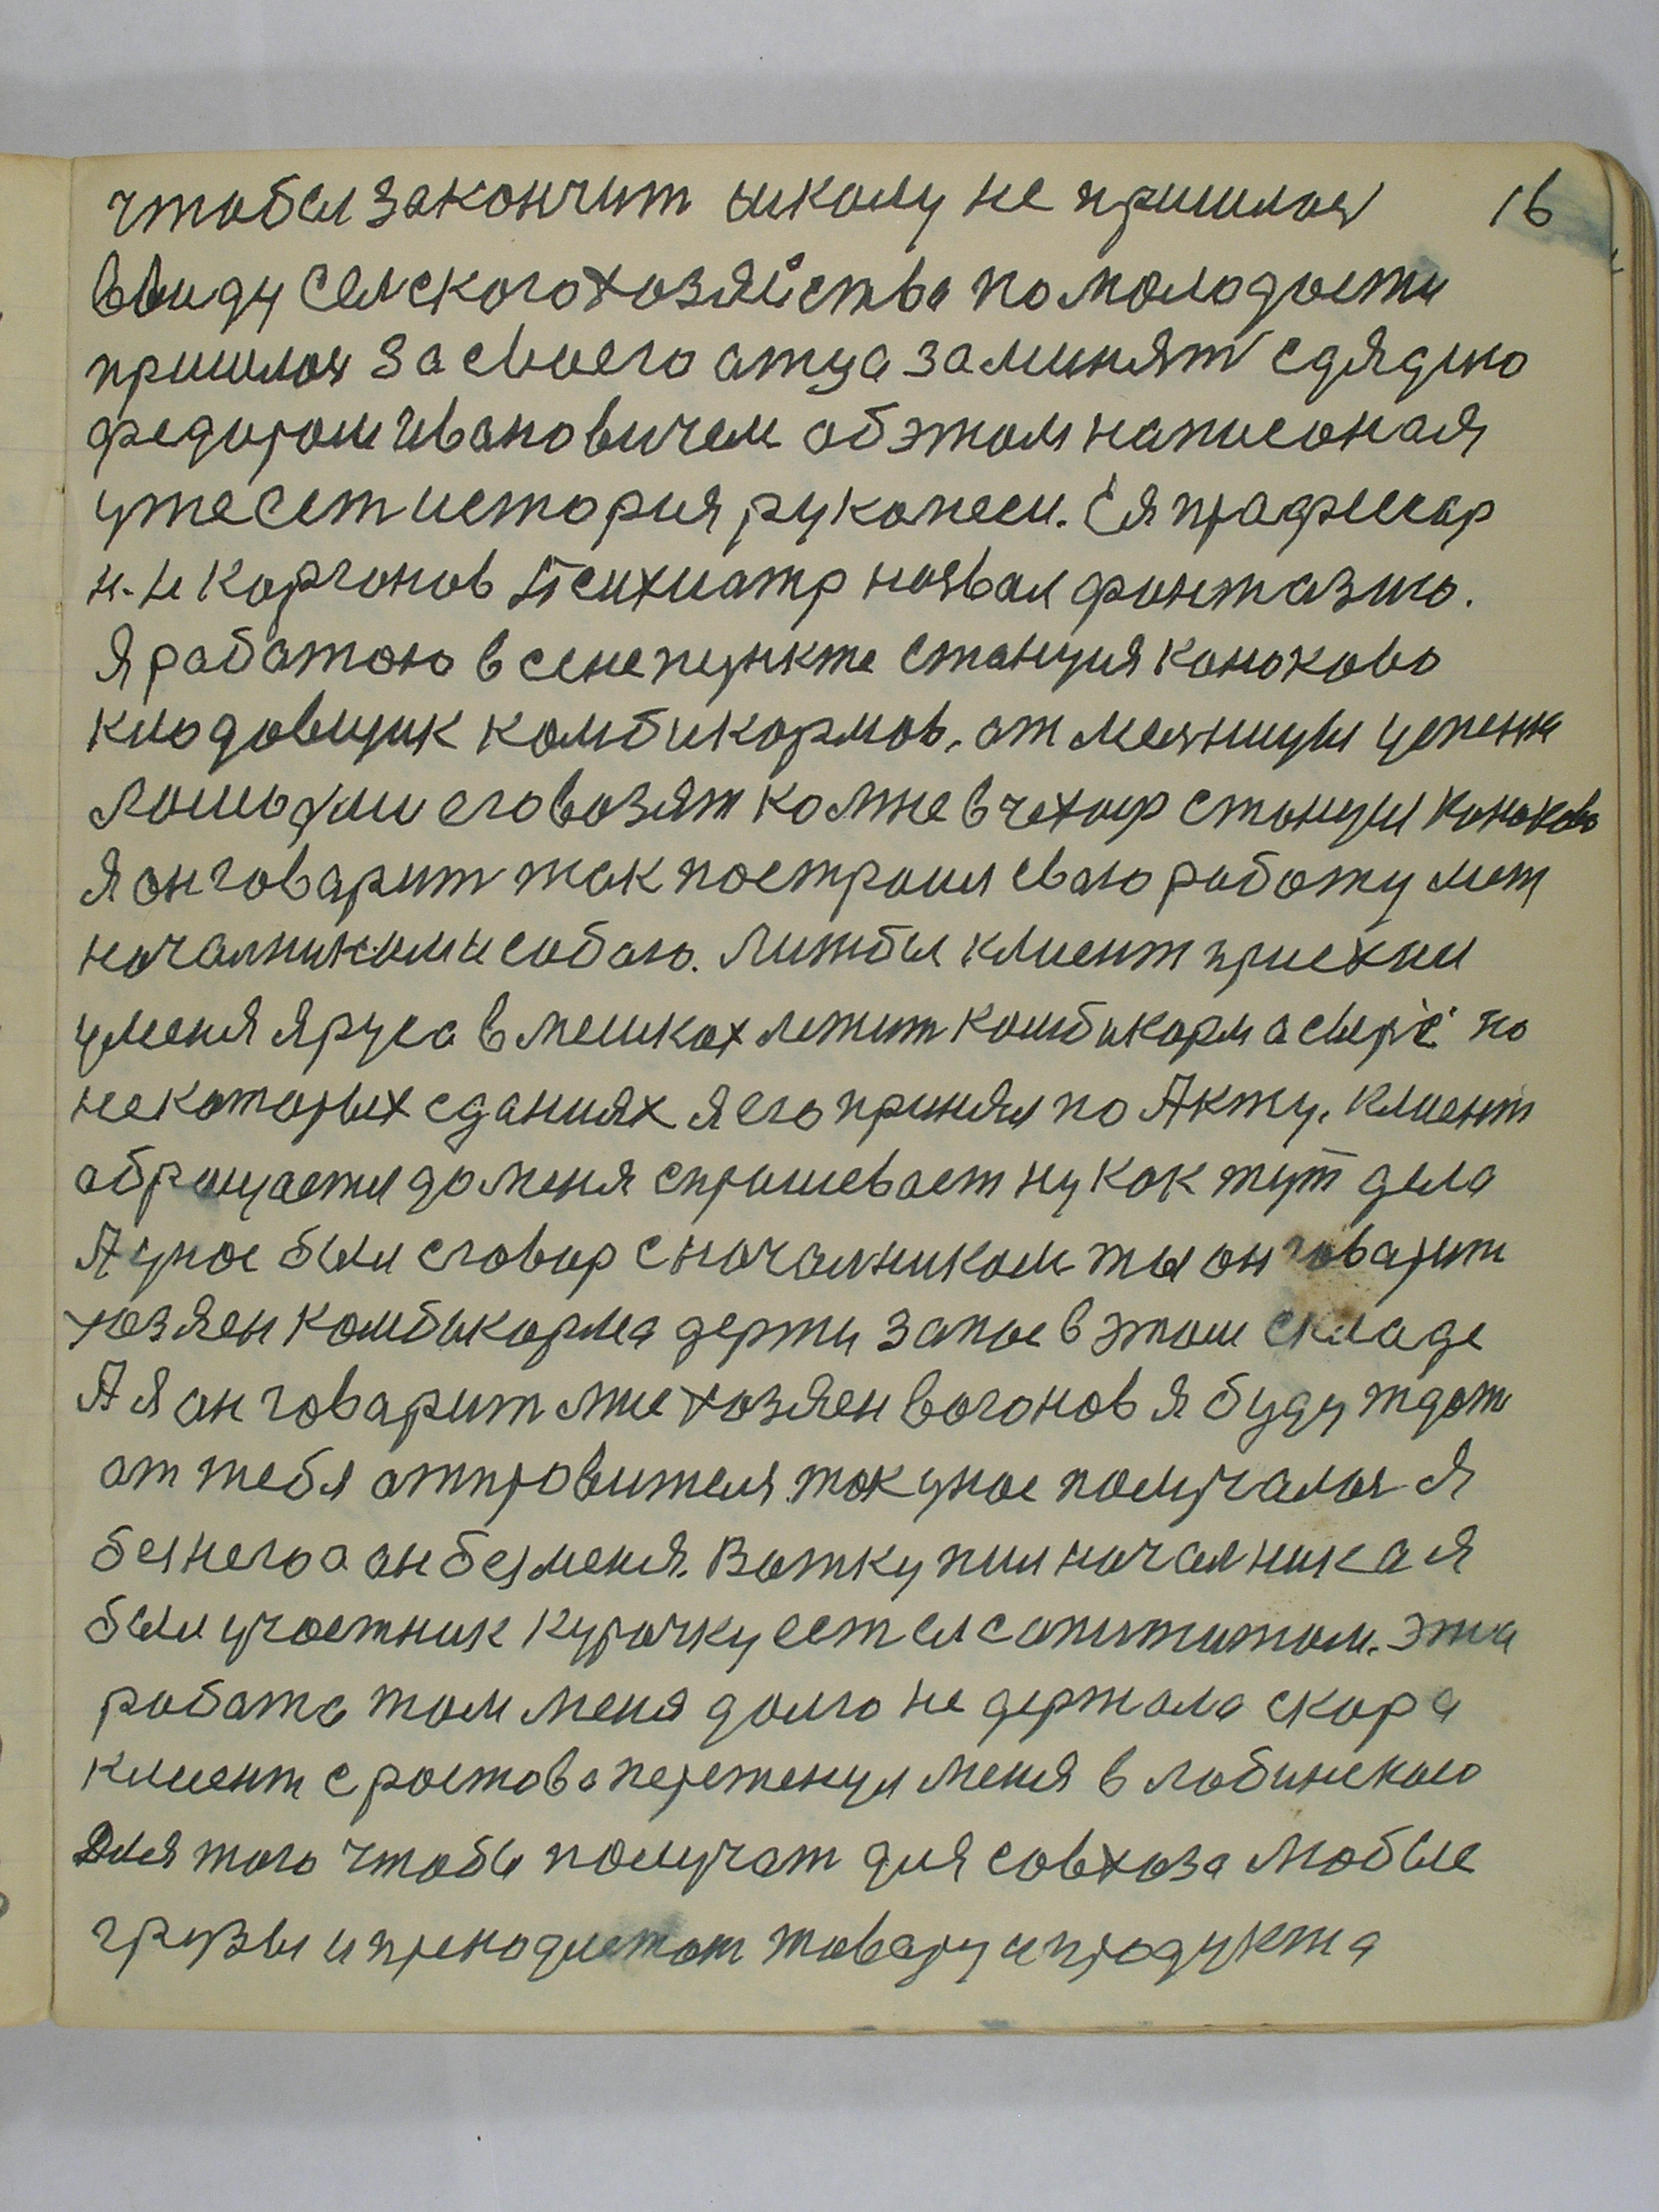 чтобы закончит школу не пришлося 16
ввиду селскогохозяйства помолодости
пришлося за своего атца заминят сдядию
федором Ивановичем обэтом написоная
ужеестистория рукописи. Её прафессор
н.н Коргонов Психиатр назвал фонтазию.
Я рабатою в сенепункте станция коноково
кладовщик комбикормов, от мелницы успенка
лошадми еговозят комне вчехаир станции коноково
Я он говарит так построил сваю работу меж
началникоми собаю. Лижбы клиент приехал
уменя яруса в мешках лежит комбикорм асыр'ё по
некоторых сданиях я его принял по Акту. Клиент
обращается доменя спрашевает ну как тут дела
А унас был сговор сначалником ты он говарит
хозяен комбикорма держи запас в этом складе
А я он говарит мне хозяен вогонов я буду ждат
от тебя атправителя. так унас получалося я
безнего а он безменя. Вотку пил началник а я
был участник курочку ест ел сапититом. Эта
работа там меня долго не держала скора
клиент с ростова перетенул меня в лабинскаю
Для того чтобы получат для совхоза любые
грузы и товару ипродукта